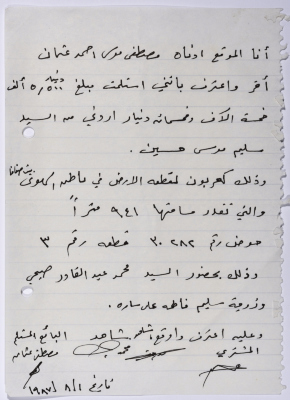 أنا الموقع ادناه مصطفى موسى احمد عثمان
أقر واعترف بأنني استلمت مبلغ ٥٫٥٠٠ دينار ألف
خمسة الآف وخمسمائة دينار اردني من السيد
سليم موسى حسين .
وذلك كعربون لقطعه الارض في بيت صفافا
والتي تقدر مساحتها ٩٤١ متراً
حوض رقم ٣٠٢٨٢ قطعه رقم ٣
وذلك بحضور السيد محمد عبد القادر صبحي
وزوجة سليم فاطمه علي ساره .
وعليه اعترف واوقع شاهد البائع المستلم
المشتري محمد مصطفى عثمان
تاريخ ٨/١/ ١٩٨٣